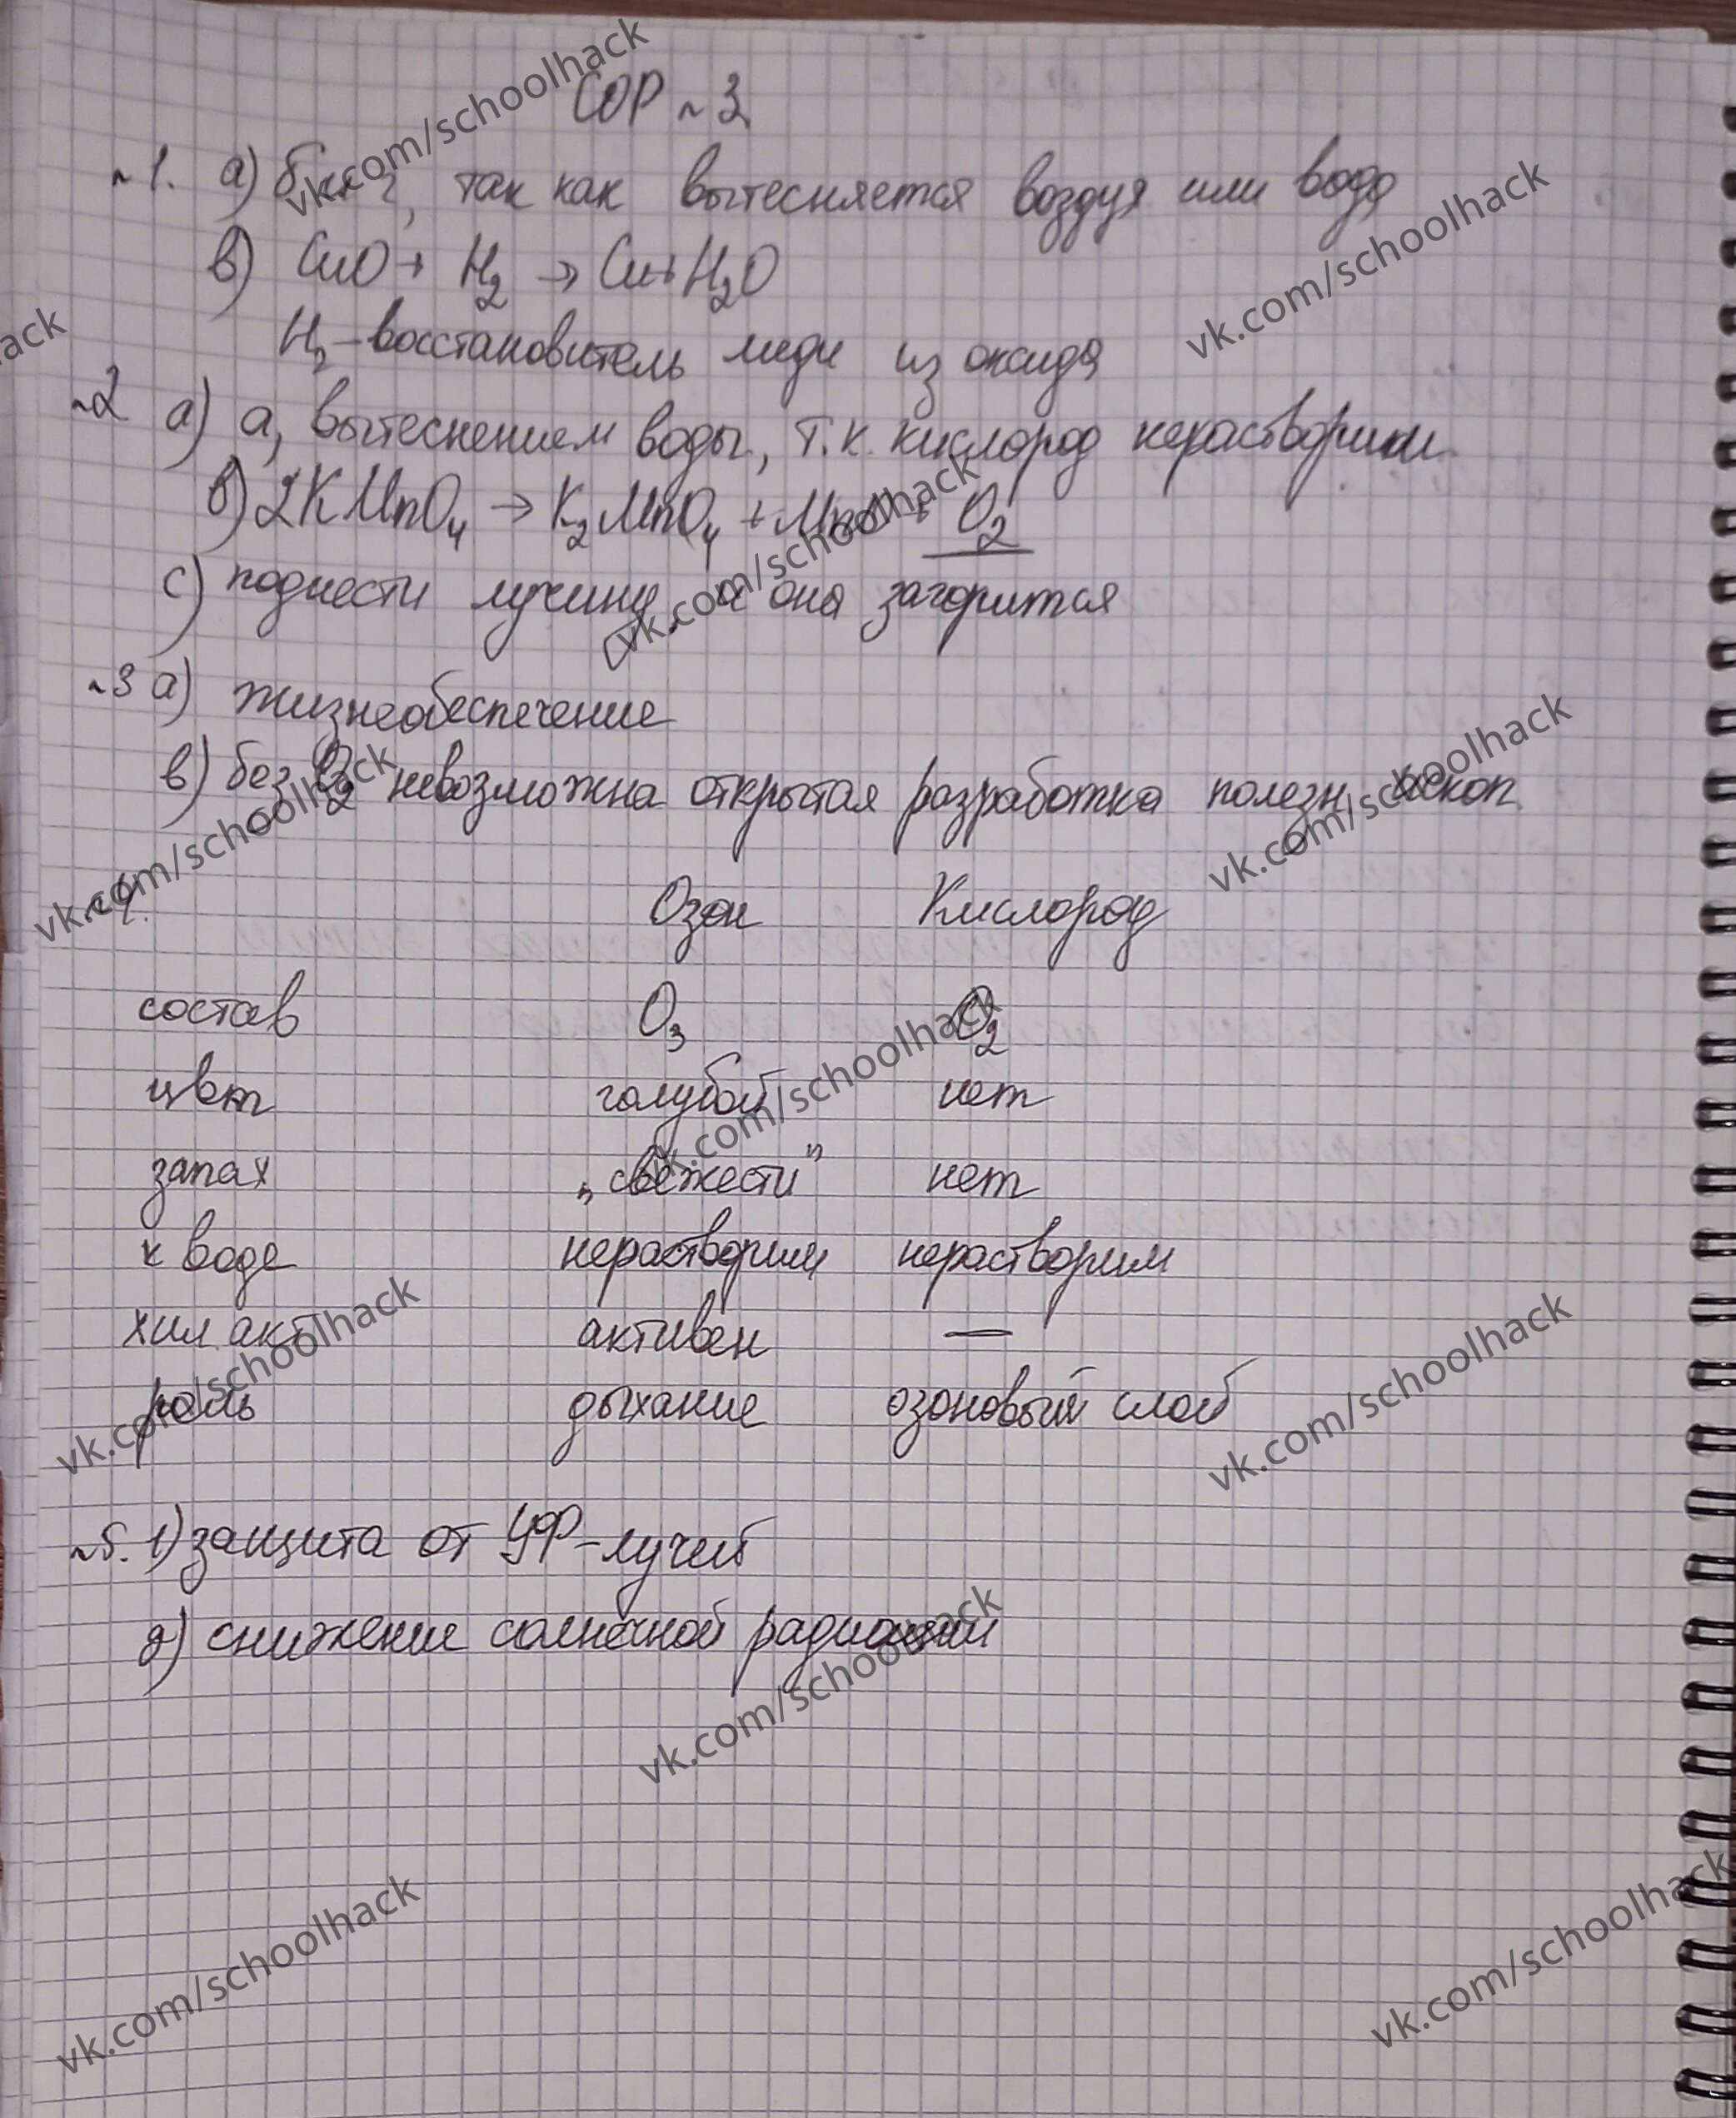 СОР ~3
~1. а) б или г, так как вытесняется воздух или вода
в) CuO + H2 → Cu + H2O
H2 – восстановитель меди из оксида
~2 а) а, вытеснением воды, т.к. кислород нерастворим
в) 2KMnO4 → K2MnO4 + + O2
с) поднести лучину, а она загорится
~3 а) жизнеобеспечение
в) без O2 невозможна открытая разработка полезн. ископ
~4. Озон Кислород
состав O3 O2
цвет голубой нет
запах „свежести" нет
к воде нерастворим нерастворим
хим. акт активен —
роль дыхание озоновый слой
~5. 1) защита от УФ-лучей
2) снижение солнечной радиации
vk.com/schoolhack
vk.com/schoolhack
hack
vk.com/schoolhack
vk.com/schoolhack
vk.com/schoolhack
vk.com/schoolhack
vk.com/schoolhack
vk.com/schoolhack
vk.com/schoolhack
vk.com/schoolhack
vk.com/schoolhack